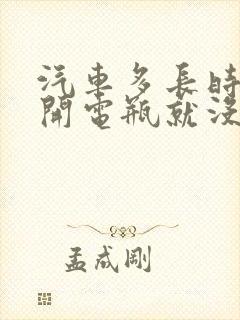 汽車多長時
開電瓶就沒
孟成剛